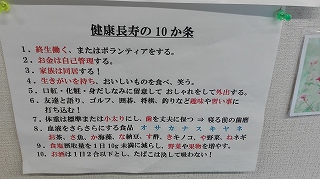 健康長寿の10か条
1．終生働く、またはボランティアをする。
2．お金は自己管理する。
3．家族は同居する！
4．生きがいを持ち、おいしいものを食べ、笑う。
5．口紅・化粧・身だしなみに留意して おしゃれをして外出する。
6．友達と語り、ゴルフ、囲碁、将棋、釣りなど趣味や習い事に
打ち込む！
7．体重は標準または小太りにし、歯を丈夫に保つ ⇒ 寝る前の歯磨
8．血液をさらさらにする食品 オサカナスキヤネ
お茶、さ魚、か海藻、な納豆、す酢、きキノコ、や野菜、ねネギ
9．食塩摂取量を1日10g未満に減らし、野菜や果物を増やす。
10．お酒は1日2合以下とし、たばこは決して吸わない！